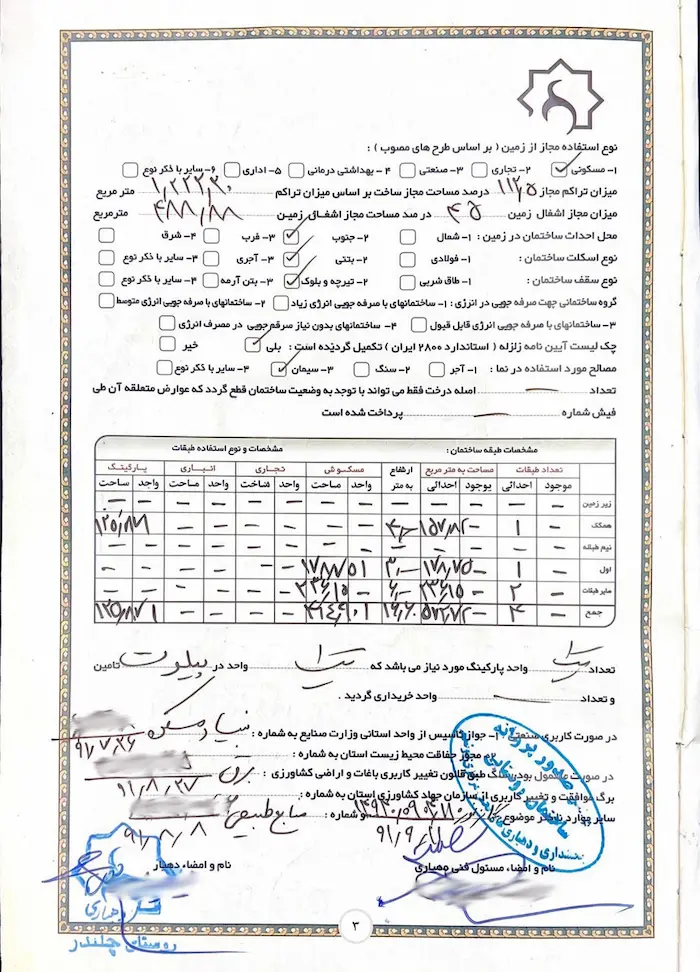 نوع استفاده مجاز از زمین ( بر اساس طرح های مصوب ) :
۱- مسکونی ✓ ۲- تجاری ۳- صنعتی ۴- بهداشتی درمانی ۵- اداری ۶- سایر با ذکر نوع
میزان تراکم مجاز ۱۱۲/۵ درصد مساحت مجاز ساخت بر اساس میزان تراکم ۱,۲۲۲/۲۰ متر مربع
میزان مجاز اشغال زمین ۴۵ در صد مساحت مجاز اشغال زمین ۴۸۸/۸۸ مترمربع
محل احداث ساختمان در زمین : ۱- شمال ۲- جنوب ✓ ۳- غرب ۴- شرق
نوع اسکلت ساختمان : ۱- فولادی ۲- بتنی ✓ ۳- آجری ۴- سایر با ذکر نوع
نوع سقف ساختمان : ۱- طاق ضربی ۲- تیرچه و بلوک ✓ ۳- بتن آرمه ۴- سایر با ذکر نوع
گروه ساختمانی جهت صرفه جویی در انرژی : ۱- ساختمانهای با صرفه جویی انرژی زیاد ۲- ساختمانهای با صرفه جویی انرژی متوسط
۳- ساختمانهای با صرفه جویی انرژی قابل قبول ۴- ساختمانهای بدون نیاز سرفه جویی در مصرف انرژی
چک لیست آیین نامه زلزله ( استاندارد ۲۸۰۰ ایران ) تکمیل گردیده است : بلی ✓ خیر
مصالح مورد استفاده در نما : ۱- آجر ۲- سنگ ۳- سیمان ✓ ۴- سایر با ذکر نوع
تعداد — اصله درخت فقط می تواند با توجه به وضعیت ساختمان قطع گردد که عوارض متعلقه آن طی
فیش شماره — پرداخت شده است
مشخصات طبقه ساختمان : مشخصات و نوع استفاده طبقات
تعداد طبقات مساحت به متر مربع ارتفاع مسکونی تجاری انباری پارکینگ
موجود احداثی موجود احداثی به متر واحد مساحت واحد مساحت واحد مساحت واحد مساحت
زیر زمین — — — — — — — — — — — — —
همکف — ۱ — ۱۵۷/۸۲ — — — — — — ۱۲۵/۸۷
نیم طبقه — — — — — — — — — — — — —
اول — ۱ — ۱۷۸/۷۵ ۳/— ۱ ۱۷۸/۷۵ — — — — — —
سایر طبقات — ۲ — ۲۳۶/۱۵ ۶/— — ۲۳۶/۱۵ — — — — — —
جمع — ۴ — ۵۷۲/۷۲ ۱ — — — — ۱ ۱۲۵/۸۷
تعداد یک واحد پارکینگ مورد نیاز می باشد که یک واحد در پیلوت تامین
و تعداد — واحد خریداری گردید .
در صورت کاربری صنعتی ۱- جواز تاسیس از واحد استانی وزارت صنایع به شماره : بنیاد مسکن
۹۱/۷/۲۶
۲- مجوز حفاظت محیط زیست استان به شماره :
در صورت مشمول بودن طبق قانون تغییر کاربری باغات و اراضی کشاورزی : برق
۹۱/۸/۲۷
برگ موافقت و تغییر کاربری از سازمان جهاد کشاورزی استان به شماره :
سایر موارد با ذکر موضوع و شماره : منابع طبیعی
۹۱/۸/۸
نام و امضاء، مسئول فنی دهیاری نام و امضاء، دهیار
صدور پروانه
ساختمانهای روستایی
بخشداری و دهیاری
دهیاری
روستای چلندر
۳